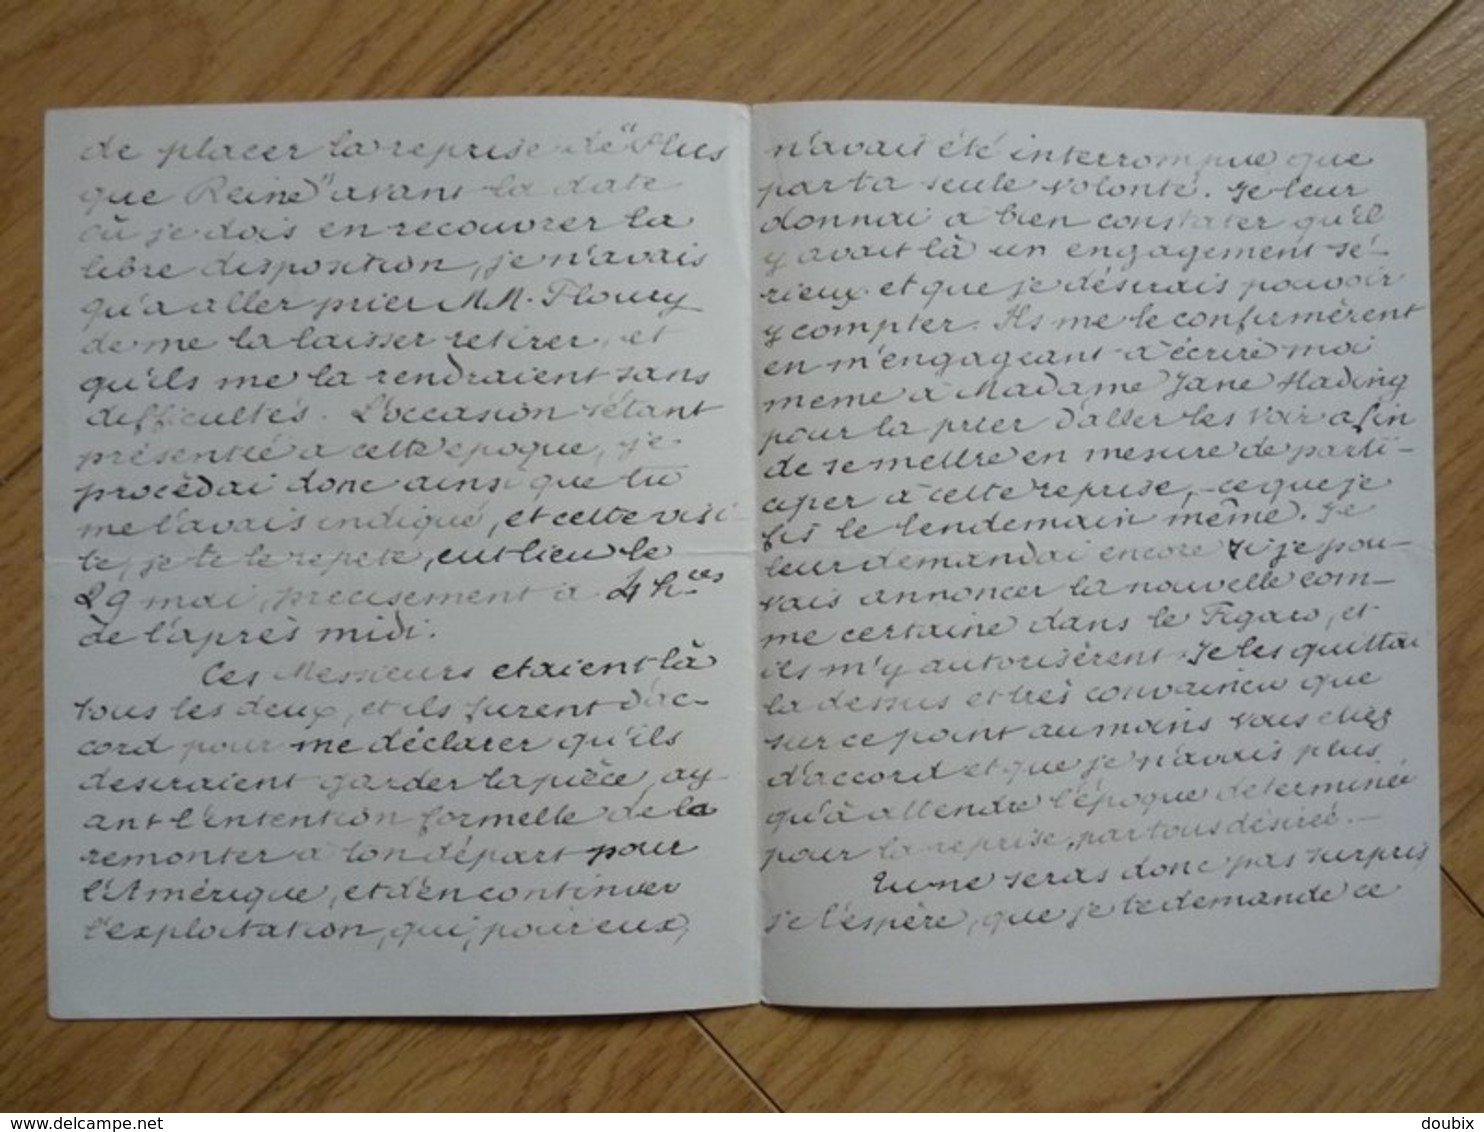 de placer la reprise de "Plus
que Reine" avant la date
où je dois en recouvrer la
libre disposition, je n'avais
qu'à aller prier MM. Floury
de me la laisser retirer, et
qu'ils me la rendraient sans
difficultés. L'occasion s'étant
présentée à cette époque, je
procédai donc ainsi que tu
me l'avais indiqué, et cette visi-
te, je te le repete, eut lieu le
29 mai, precisement à 4 hres
de l'après midi.
Ces Messieurs etaient là
tous les deux, et ils furent d'ac-
cord pour me déclarer qu'ils
desiraient garder la pièce, ay-
ant l'intention formelle de la
remonter à ton départ pour
l'Amérique, et d'en continuer
l'exploitation, qui, pour eux,
n'avait été interrompue que
par ta seule volonté. Je leur
donnai à bien constater qu'il
y avait là un engagement sé-
rieux et que je désirais pouvoir
y compter. Ils me le confirmèrent
en m'engageant à écrire moi
meme à Madame Jane Hading
pour la prier d'aller les voir afin
de se mettre en mesure de parti-
ciper à cette reprise, - ce que je
fis le lendemain même. Je
leur demandai encore si je pou-
vais annoncer la nouvelle com-
me certaine dans le Figaro, et
ils m'y autorisèrent. Je les quittai
la dessus et très convaincu que
sur ce point au moins vous etiez
d'accord et que je n'avais plus
qu'à attendre l'époque determinée
pour la reprise, par tous désirée. -
Tu ne seras donc pas surpris,
je l'espère, que je te demande ce
delcampe.net
doubix